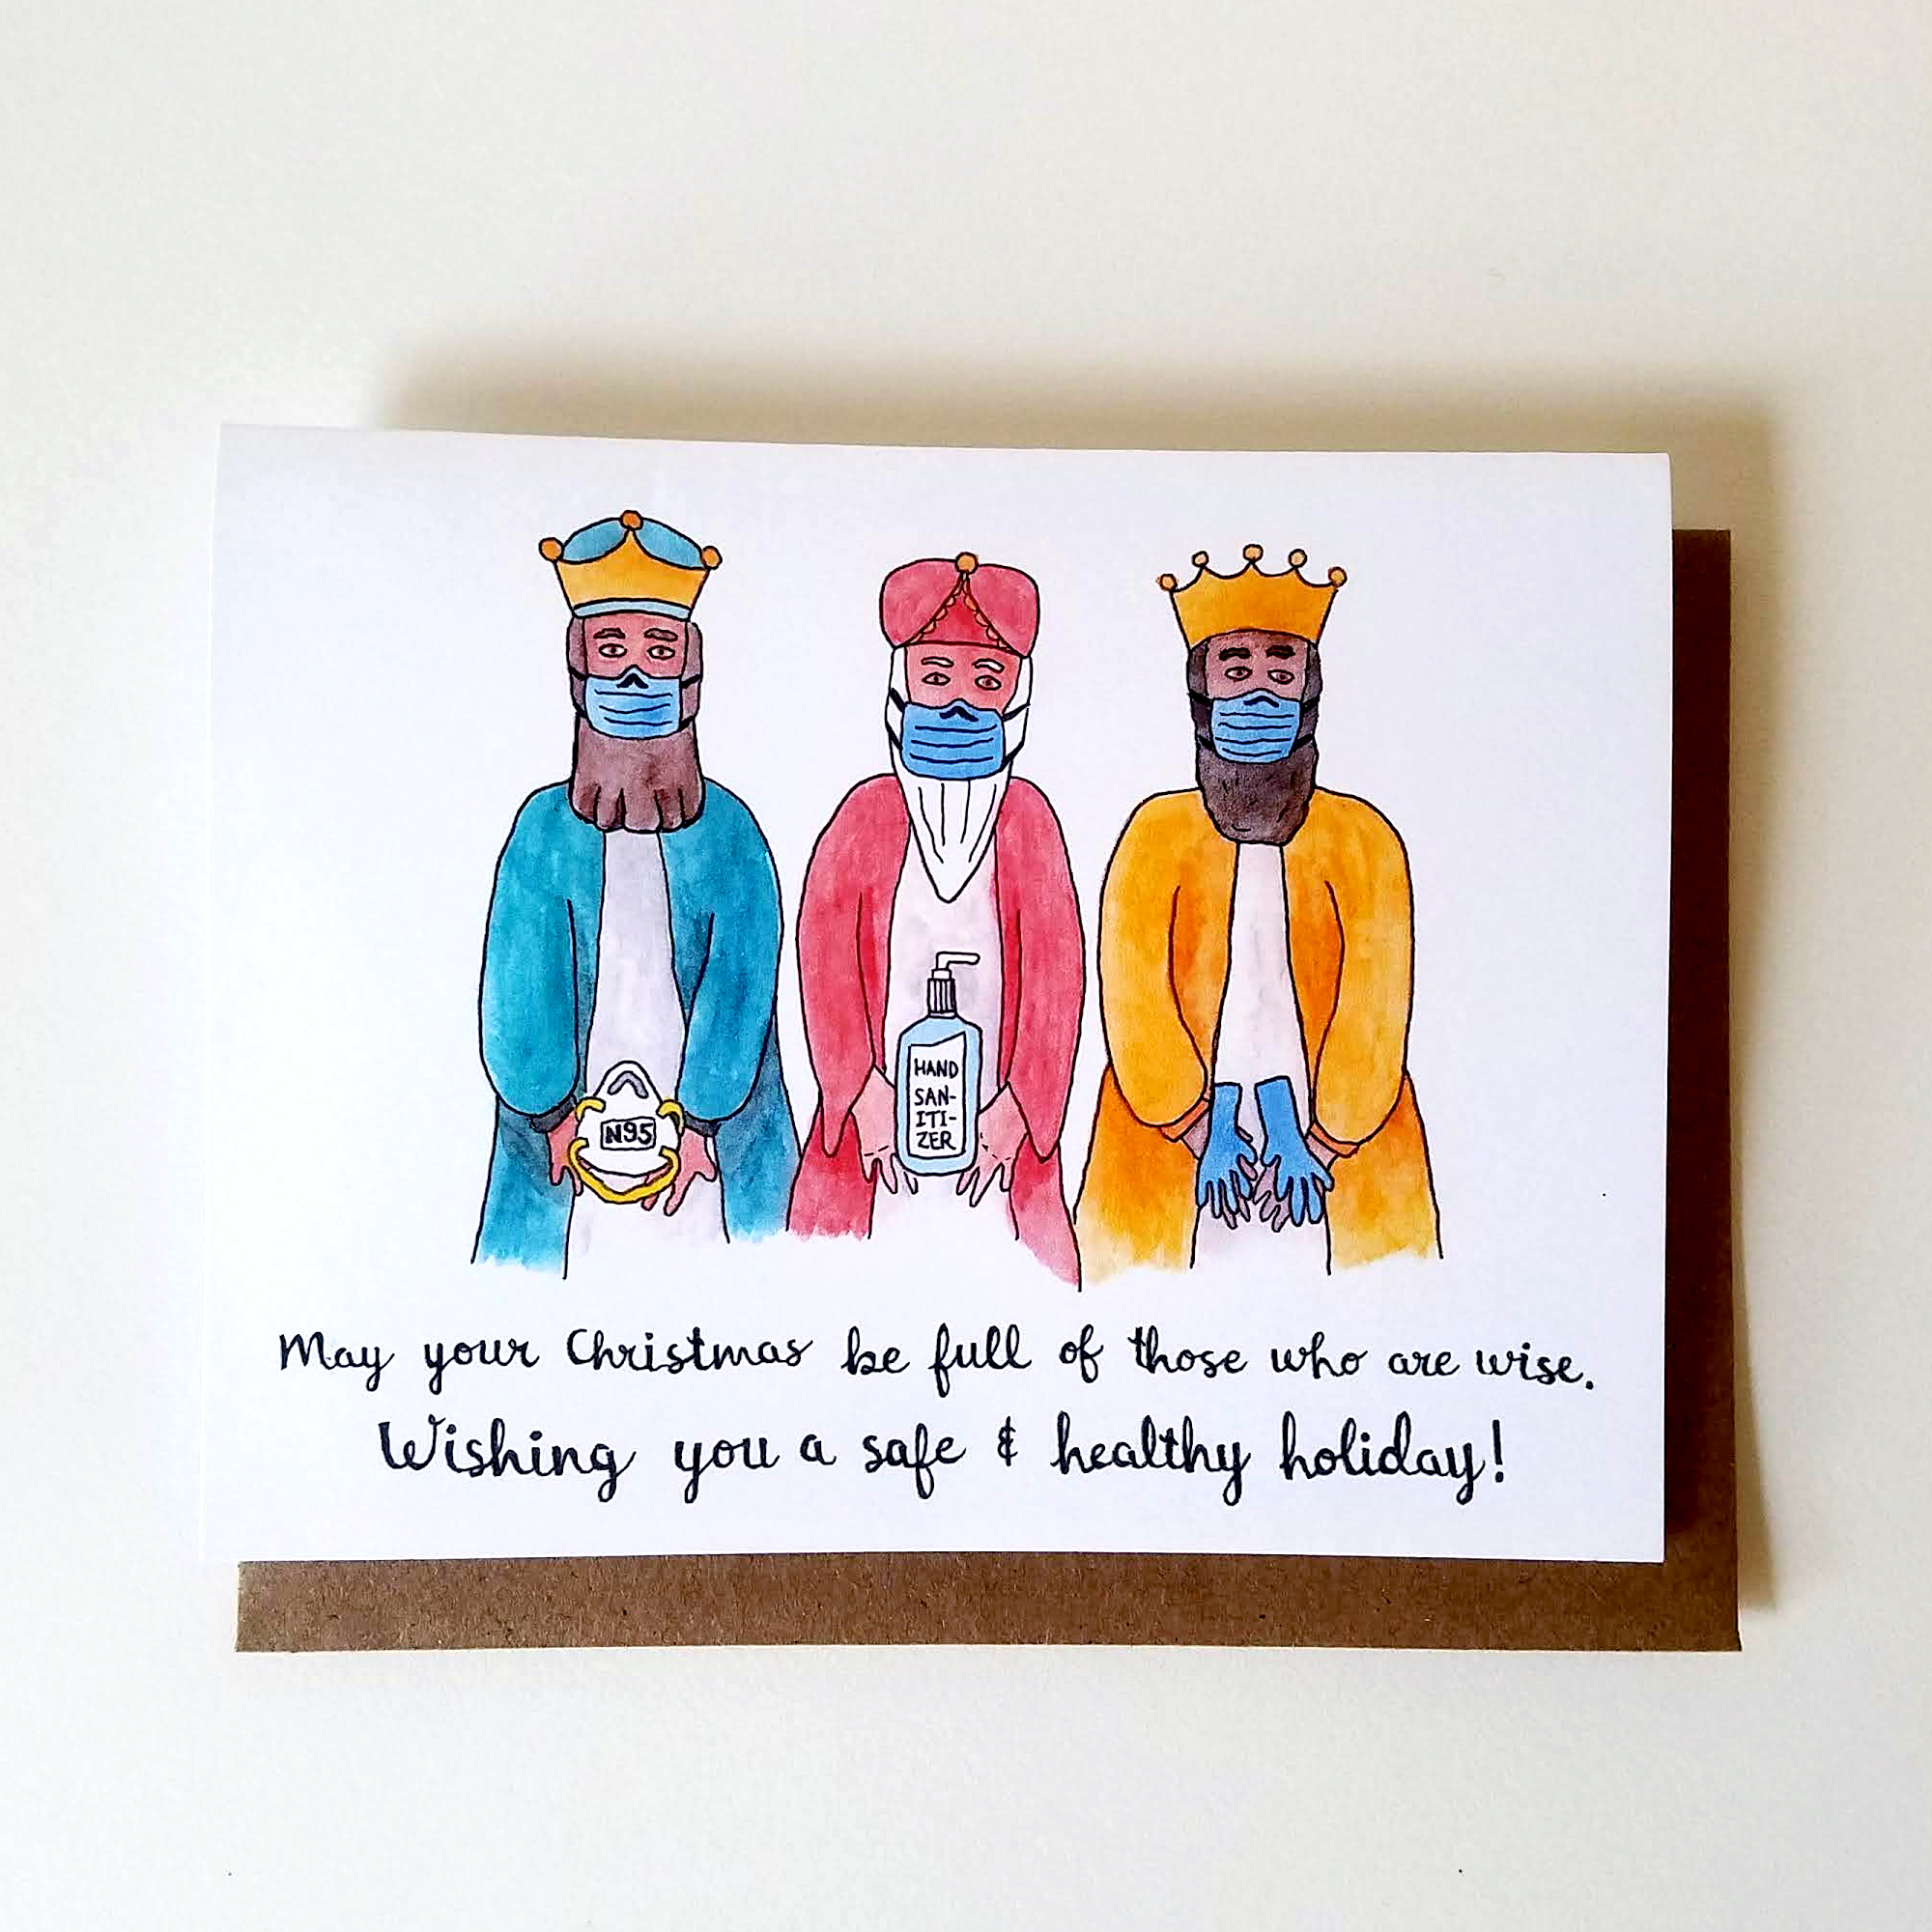 N95
HAND
SAN-
ITI-
ZER
May your Christmas be full of those who are wise.
Wishing you a safe & healthy holiday!